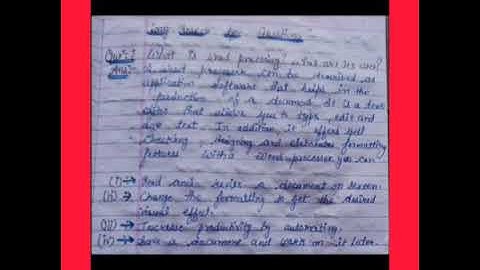 Que:-1 What is word processing? What are its uses?
Ans:- A word processor can be described as
application software that helps in the
production of a document. It is a text
editor that allows you to type, edit and
text. In addition, it offers spell
checking, designing and elaborate formatting
features. With a word-processor you can
(i) → Read and a document on screen.
(ii) → Change the formatting to get the desired
visual effect.
(iii) → Increase productivity by automating.
(iv) → Save a document and work on it later.